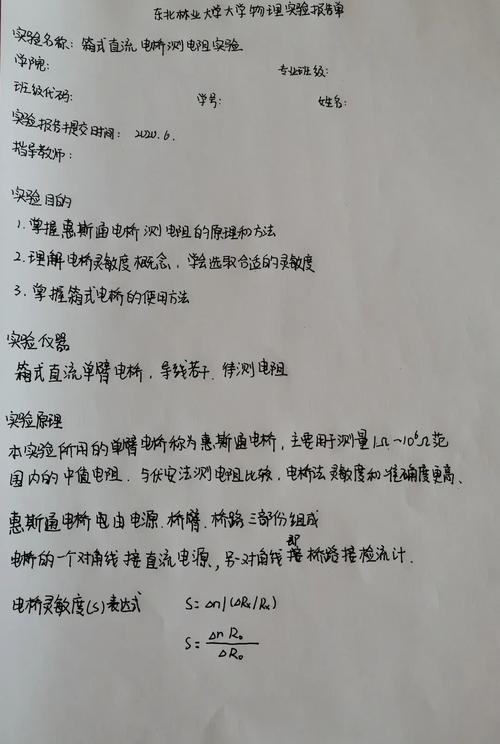 东北林业大学大学物理实验报告单
实验名称：箱式直流电桥测电阻实验
学院：
专业班级：
班级代码：
学号：
姓名：
实验报告提交时间：2020.6.
指导教师：
实验目的
1.掌握惠斯通电桥测电阻的原理和方法
2.理解电桥灵敏度概念，学会选取合适的灵敏度
3.掌握箱式电桥的使用方法
实验仪器
箱式直流单臂电桥，导线若干.待测电阻
实验原理
本实验所用的单臂电桥称为惠斯通电桥，主要用于测量1Ω~10⁶Ω范
围内的中值电阻.与伏安法测电阻比较，电桥法灵敏度和准确度更高、
惠斯通电桥电由电源.桥臂.桥路三部份组成
电桥的一个对角线接直流电源，另一对角线即接桥路接检流计.
电桥灵敏度(S)表达式 S=Δn/(ΔRₓ/Rₓ)
S=Δn R₀/ΔR₀